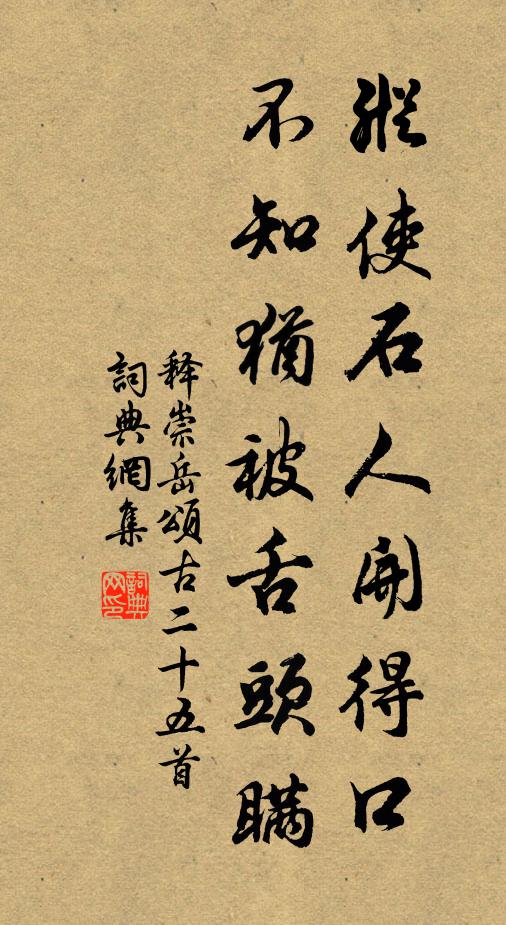 縱使石人開得口
不知猶被舌頭瞞
释崇岳頌古二十五首
詞典網集
詞典网印